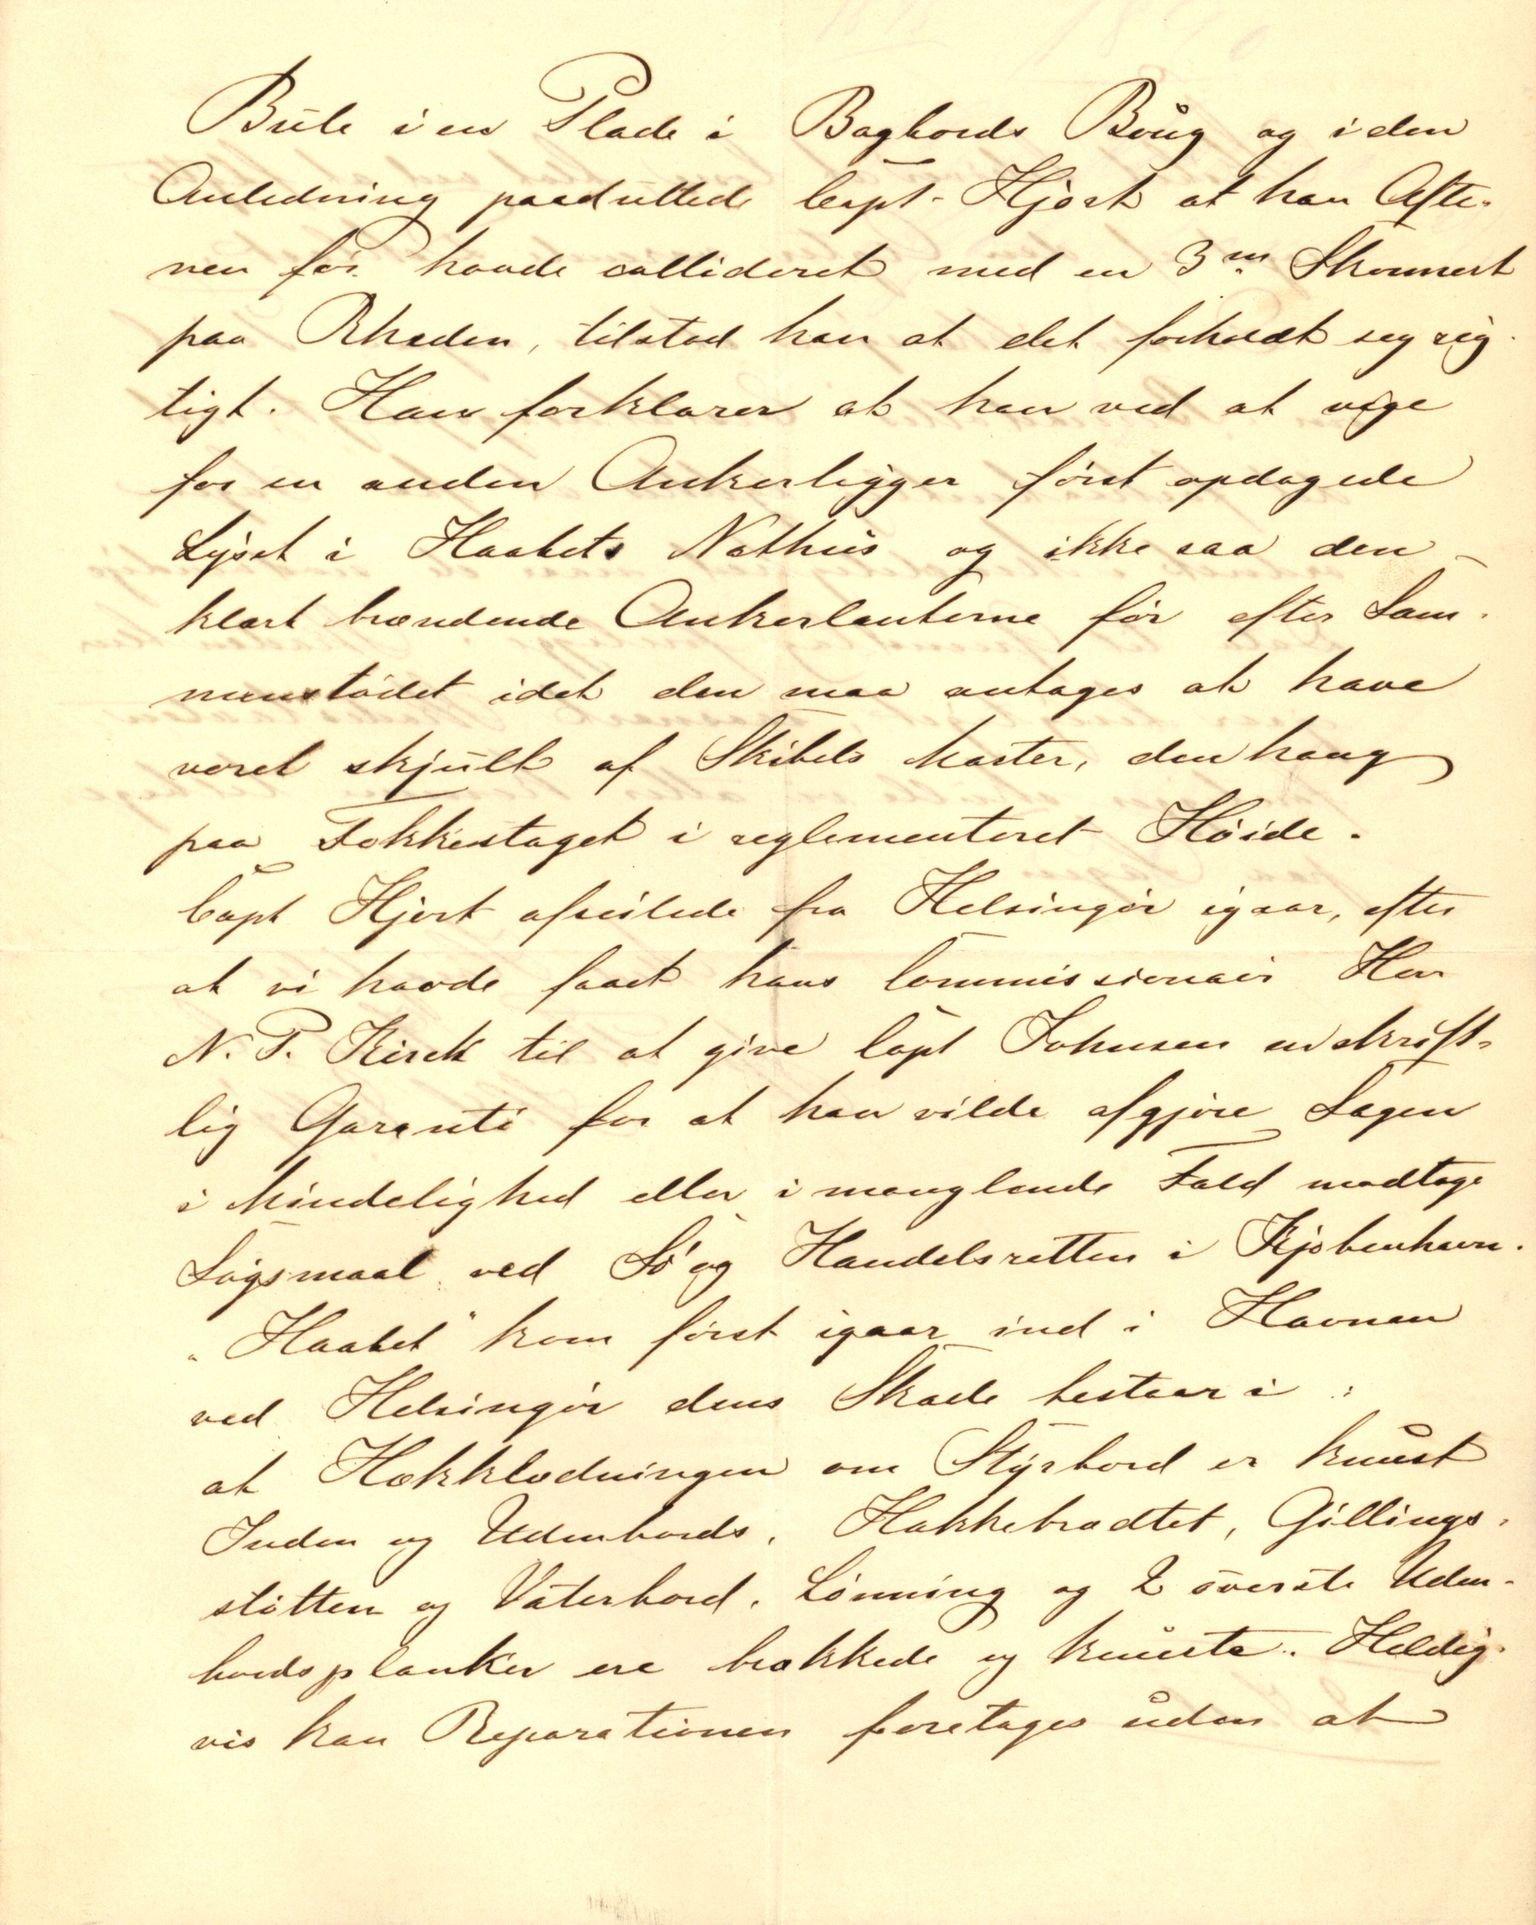 Bule i en Plade i Bagbords Boug og i den
Anledning paaduttede Capt. Hjort at han Afte-
nen før havde collideret med en 3m Skonnert
paa Rheden, tilstod han at det forholdt seg rig-
tigt. Han forklarer at han ved at vige
for en anden Ankerligger først opdagede
Lyset i Haabets Nathus og ikke saa den
klart brændende Ankerlanterne før efter Sam-
menstødet idet den maa antages at have
været skjult af Skibets Master, den hang
paa Fokkestaget i reglementeret Høide.
Capt Hjort afseilede fra Helsingør igaar, efter
at vi havde faaet hans Commissionair Herr
N. P. Kirck til at give Capt Johnsen en skrift-
lig Garanti for at han vilde afgjøre Sagen
i Mindelighed eller i manglende Fald modtage
Søgsmaal ved Sø og Handelsretten i Kjøbenhavn.
"Haabet" kom først igaar ind i Havnen
ved Helsingør dens Skade bestaar i:
at Hækklædningen om Styrbord er knust
Inden og Udenbords, Hakkebrædtet, Gillings-
støtten og Vaterbord, Lønning og 2 øverste Uden-
bordsplanker ere brækkede og knuste. Heldig-
vis kan Reparationen foretages uden at